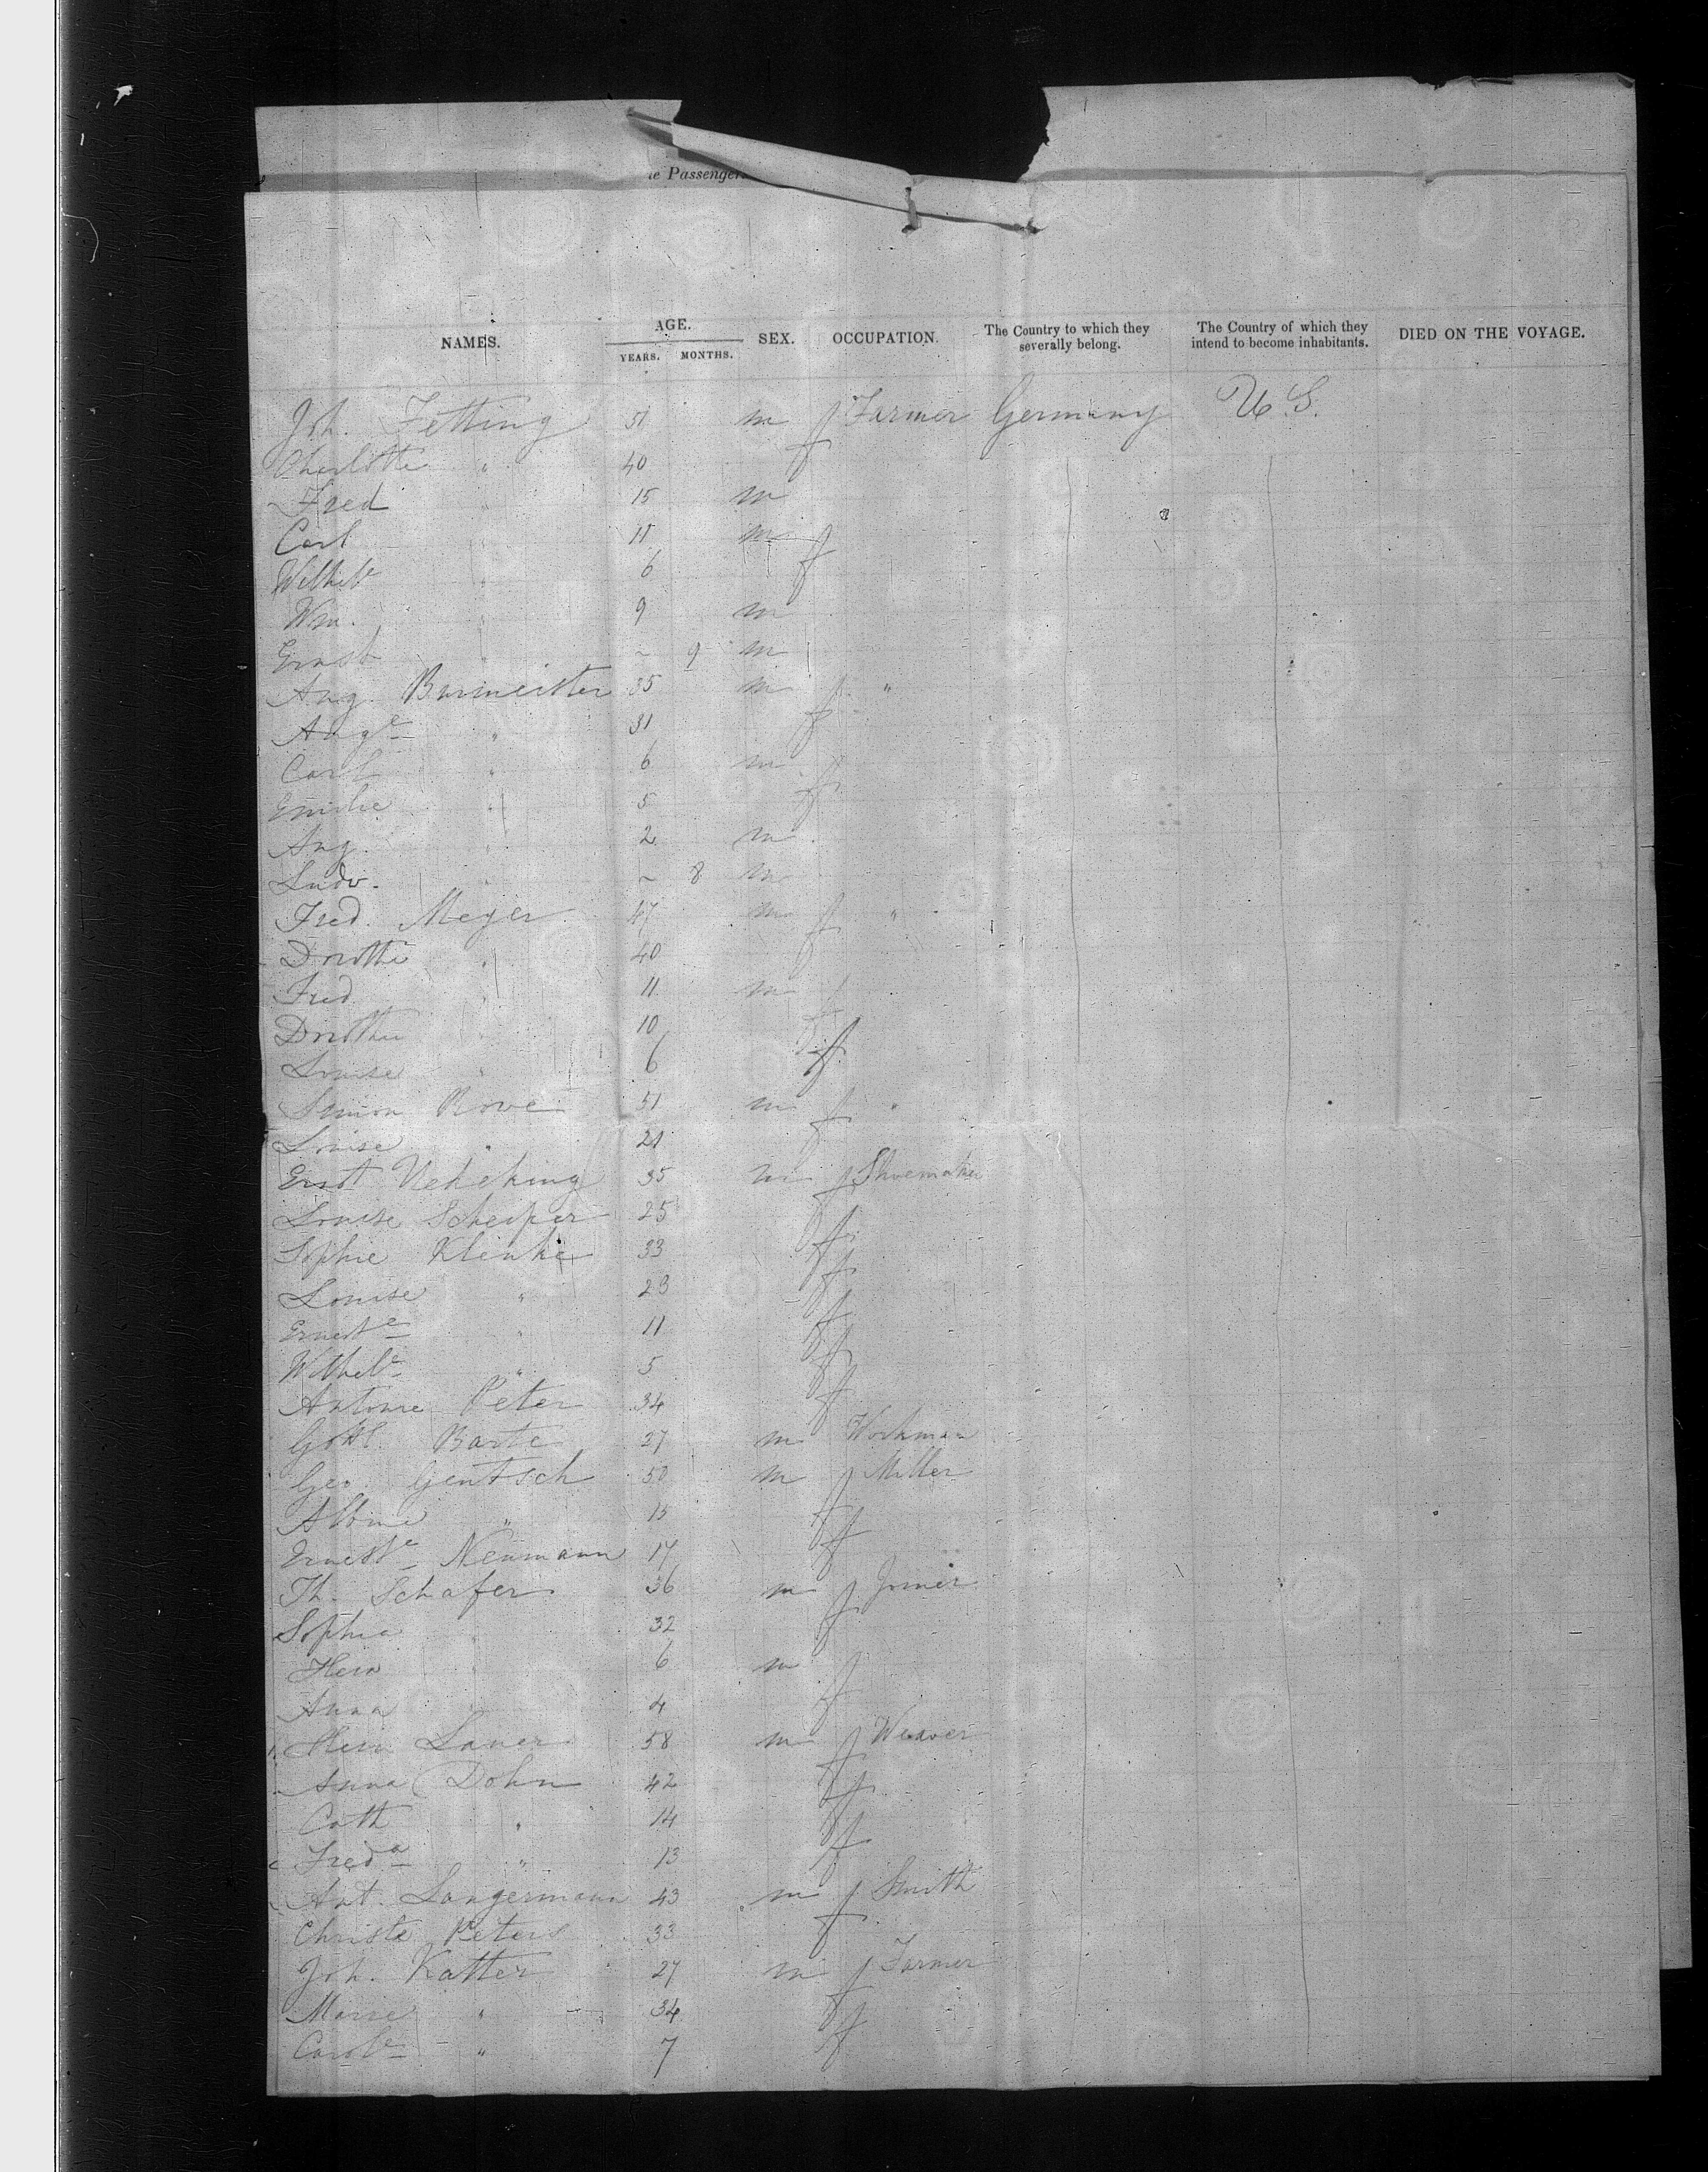 e Passengers
NAMES. AGE. YEARS. MONTHS. SEX. OCCUPATION. The Country to which they severally belong. The Country of which they intend to become inhabitants. DIED ON THE VOYAGE.
Joh. Fetting 51 m Farmer Germany U.S.
Charlotte " 40 f
Fred " 15 m
Carl " 11 m
Wilhe 6 f
Wm. " 9 m
Ernst " ~ 9 m
Aug. Burmeister 35 m "
Auge " 31 f
Carl " 6 m
Emilie " 5 f
Aug. " 2 m
Ludw. " ~ 8 m
Fred. Meyer 47 m "
Dorothe " 40 f
Fred " 11 m
Dorothe 10 f
Louise " 6 f
Simon Rowe 51 m "
Louise " 21 f
Ernst 35 m Shoemaker
Louise Scheiper 25 f
Sophie Klenke 33 f
Louise " 23 f
Erneste " 11 f
Wilhe " 5 f
Antonie Peter 34 f
Gottl. Barte 27 m Workman
Geo. Gentsch 50 m Miller
Albine " 15 f
Erneste Neumann 17 f
Th. Schafer 36 m Joiner
Sophia " 32 f
Herm 6 m
Anna " 4 f
Herm Lauer 58 m Weaver
Anna Dohn 42 f
Cath " 14 f
Freda " 13 f
Ant. Langermann 43 m Smith
Christe Peters 33 f
Joh. Katter 27 m Farmer
Marie " 34 f
Carole " 7 f